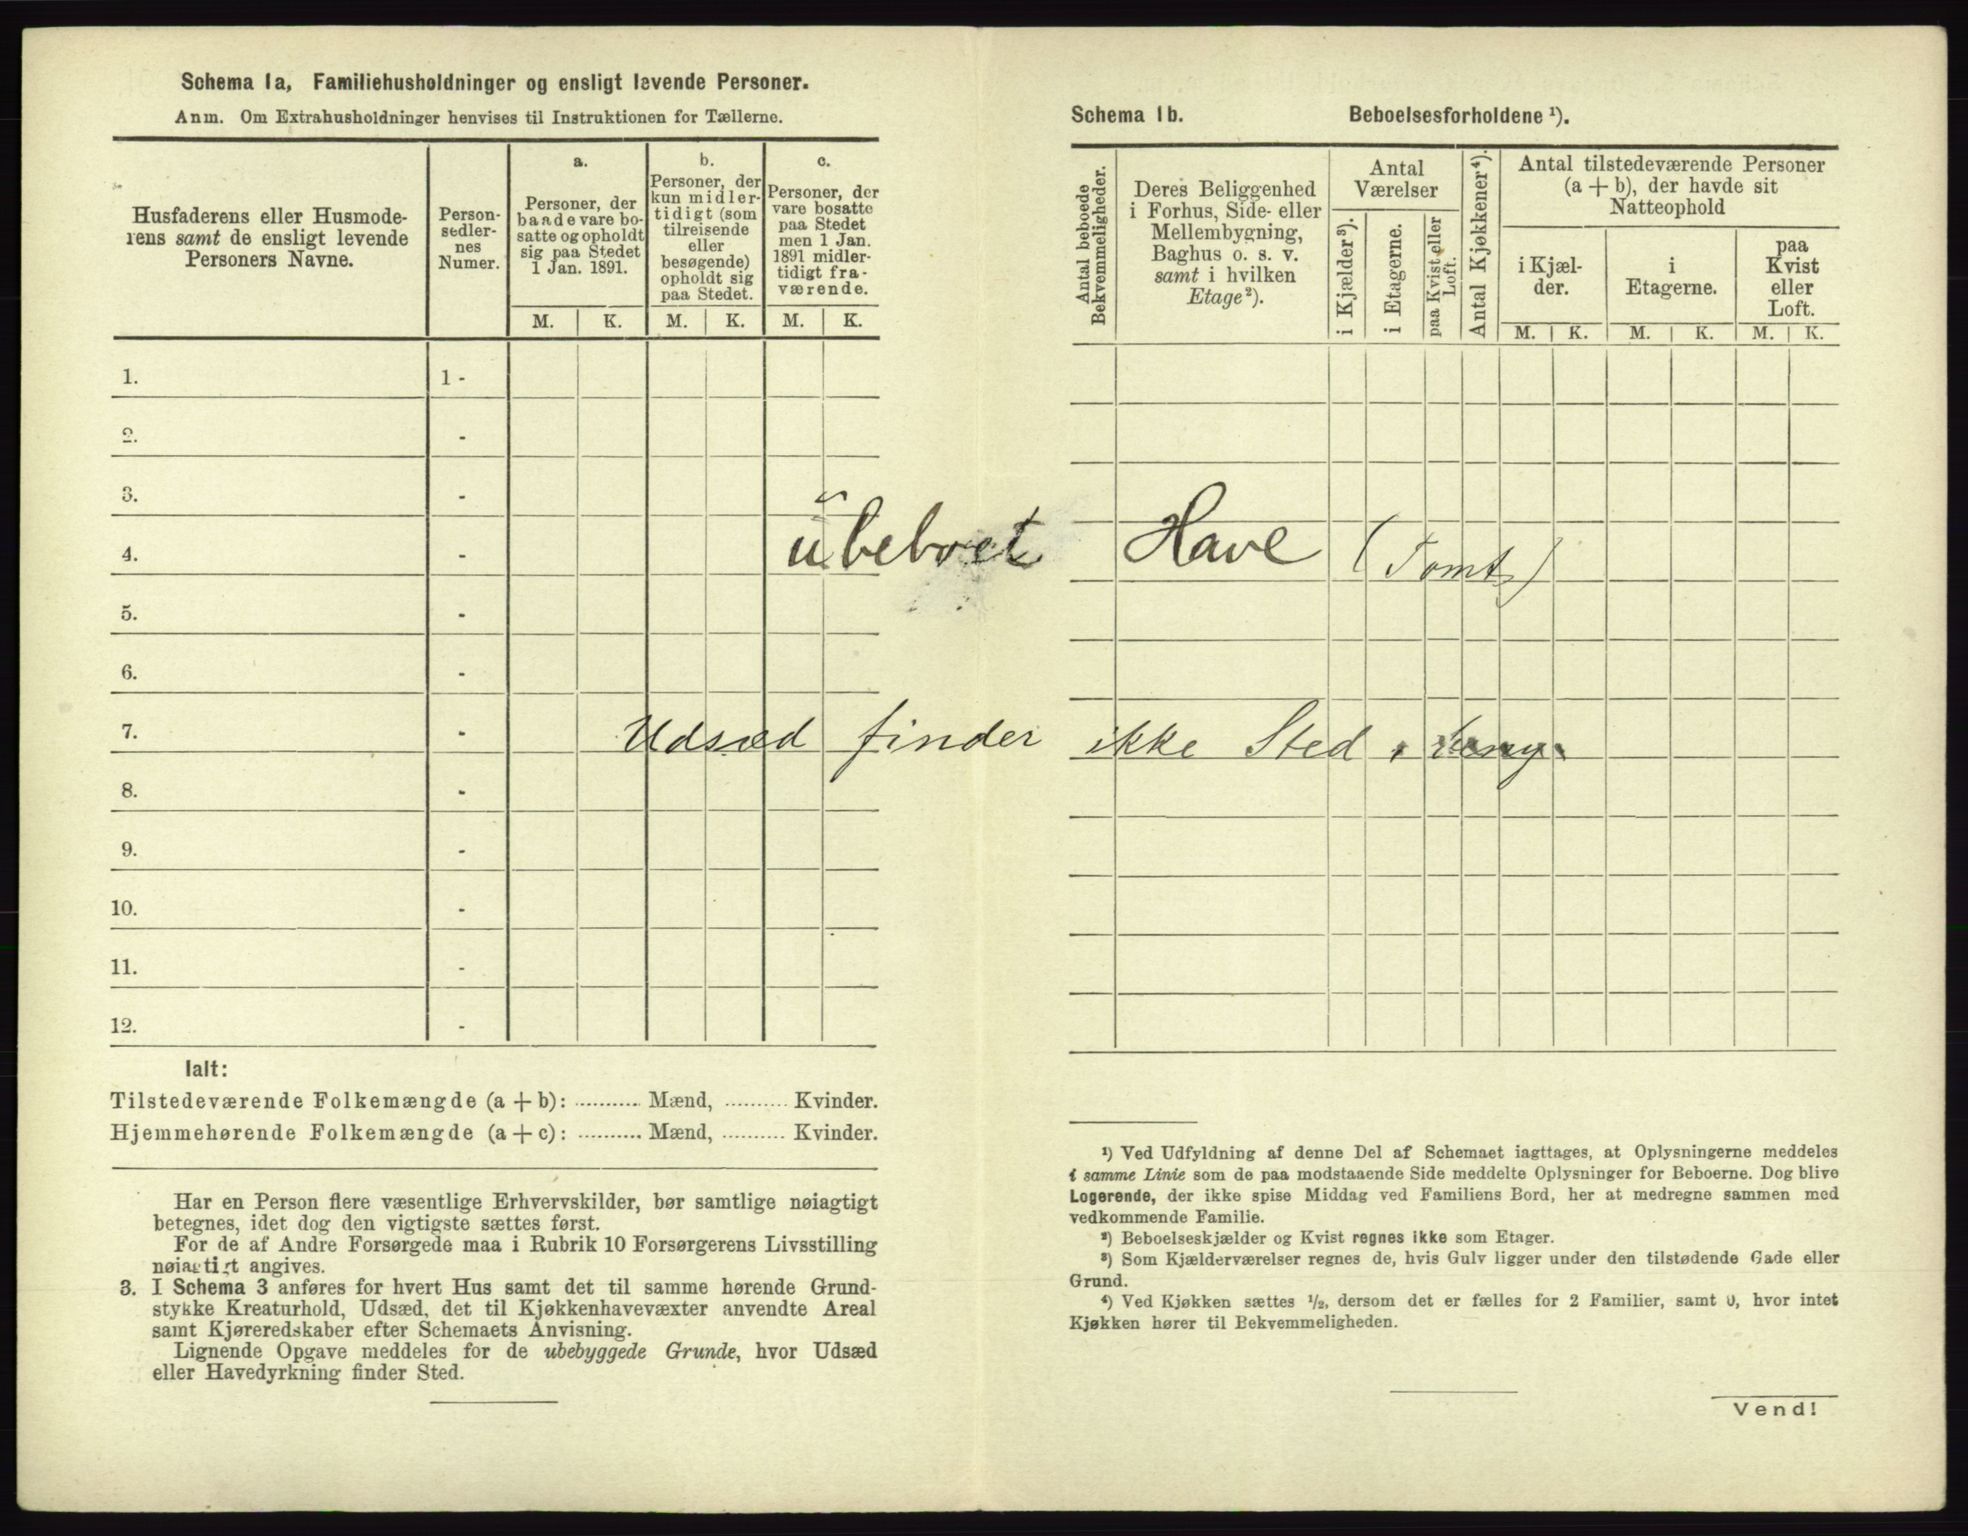 Schema 1a, Familiehusholdninger og ensligt levende Personer.
Anm. Om Extrahusholdninger henvises til Instruktionen for Tællerne.
Husfaderens eller Husmode-
rens samt de ensligt levende
Personers Navne.
Person-
sedler-
nes
Numer.
a.
Personer, der
baade vare bo-
satte og opholdt
sig paa Stedet
1 Jan. 1891.
b.
Personer, der
kun midler-
tidigt (som
tilreisende
eller
besøgende)
opholdt sig
paa Stedet.
c.
Personer, der
vare bosatte
paa Stedet
men 1 Jan.
1891 midler-
tidigt fra-
værende.
M. K. M. K. M. K.
1. 1 -
2. -
3. -
4. -
5. -
6. -
7. -
8. -
9. -
10. -
11. -
12. -
Ialt:
Tilstedeværende Folkemængde (a + b): .......... Mænd, .......... Kvinder.
Hjemmehørende Folkemængde (a + c): .......... Mænd, .......... Kvinder.
Har en Person flere væsentlige Erhvervskilder, bør samtlige nøiagtigt
betegnes, idet dog den vigtigste sættes først.
For de af Andre Forsørgede maa i Rubrik 10 Forsørgerens Livsstilling
nøiagtigt angives.
3. I Schema 3 anføres for hvert Hus samt det til samme hørende Grund-
stykke Kreaturhold, Udsæd, det til Kjøkkenhavevæxter anvendte Areal
samt Kjøreredskaber efter Schemaets Anvisning.
Lignende Opgave meddeles for de ubebyggede Grunde, hvor Udsæd
eller Havedyrkning finder Sted.
Schema 1b. Beboelsesforholdene ¹).
Antal beboede
Bekvemmeligheder.
Deres Beliggenhed
i Forhus, Side- eller
Mellembygning,
Baghus o. s. v.
samt i hvilken
Etage²).
Antal
Værelser
i Kjælder³).
i Etagerne.
paa Kvist eller
Loft.
Antal Kjøkkener⁴).
Antal tilstedeværende Personer
(a + b), der havde sit
Natteophold
i Kjæl-
der.
i
Etagerne.
paa
Kvist
eller
Loft.
M. K. M. K. M. K.
ubeboet Have (Tomt)
Udsæd finder ikke Sted
¹) Ved Udfyldning af denne Del af Schemaet iagttages, at Oplysningerne meddeles
i samme Linie som de paa modstaaende Side meddelte Oplysninger for Beboerne. Dog blive
Logerende, der ikke spise Middag ved Familiens Bord, her at medregne sammen med
vedkommende Familie.
²) Beboelseskjælder og Kvist regnes ikke som Etager.
³) Som Kjælderværelser regnes de, hvis Gulv ligger under den tilstødende Gade eller
Grund.
⁴) Ved Kjøkken sættes ½, dersom det er fælles for 2 Familier, samt 0, hvor intet
Kjøkken hører til Bekvemmeligheden.
Vend!